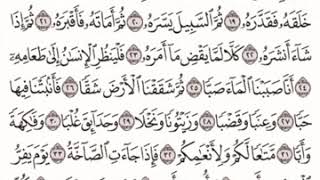 خَلَقَهُۥ فَقَدَّرَهُۥ ۝١٩ ثُمَّ ٱلسَّبِيلَ يَسَّرَهُۥ ۝٢٠ ثُمَّ أَمَاتَهُۥ فَأَقْبَرَهُۥ ۝٢١ ثُمَّ إِذَا
شَآءَ أَنشَرَهُۥ ۝٢٢ كَلَّا لَمَّا يَقْضِ مَآ أَمَرَهُۥ ۝٢٣ فَلْيَنظُرِ ٱلْإِنسَٰنُ إِلَىٰ طَعَامِهِۦٓ
۝٢٤ أَنَّا صَبَبْنَا ٱلْمَآءَ صَبًّا ۝٢٥ ثُمَّ شَقَقْنَا ٱلْأَرْضَ شَقًّا ۝٢٦ فَأَنۢبَتْنَا فِيهَا
حَبًّا ۝٢٧ وَعِنَبًا وَقَضْبًا ۝٢٨ وَزَيْتُونًا وَنَخْلًا ۝٢٩ وَحَدَآئِقَ غُلْبًا ۝٣٠ وَفَٰكِهَةً
وَأَبًّا ۝٣١ مَّتَٰعًا لَّكُمْ وَلِأَنْعَٰمِكُمْ ۝٣٢ فَإِذَا جَآءَتِ ٱلصَّآخَّةُ ۝٣٣ يَوْمَ يَفِرُّ